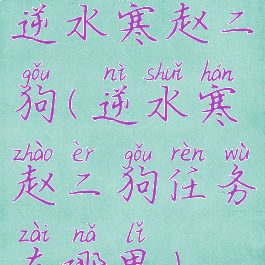 逆水寒赵二
gǒu nì shuǐ hán
狗(逆水寒
zhào èr gǒu rèn wù
赵二狗任务
zài nǎ lǐ
在哪里)